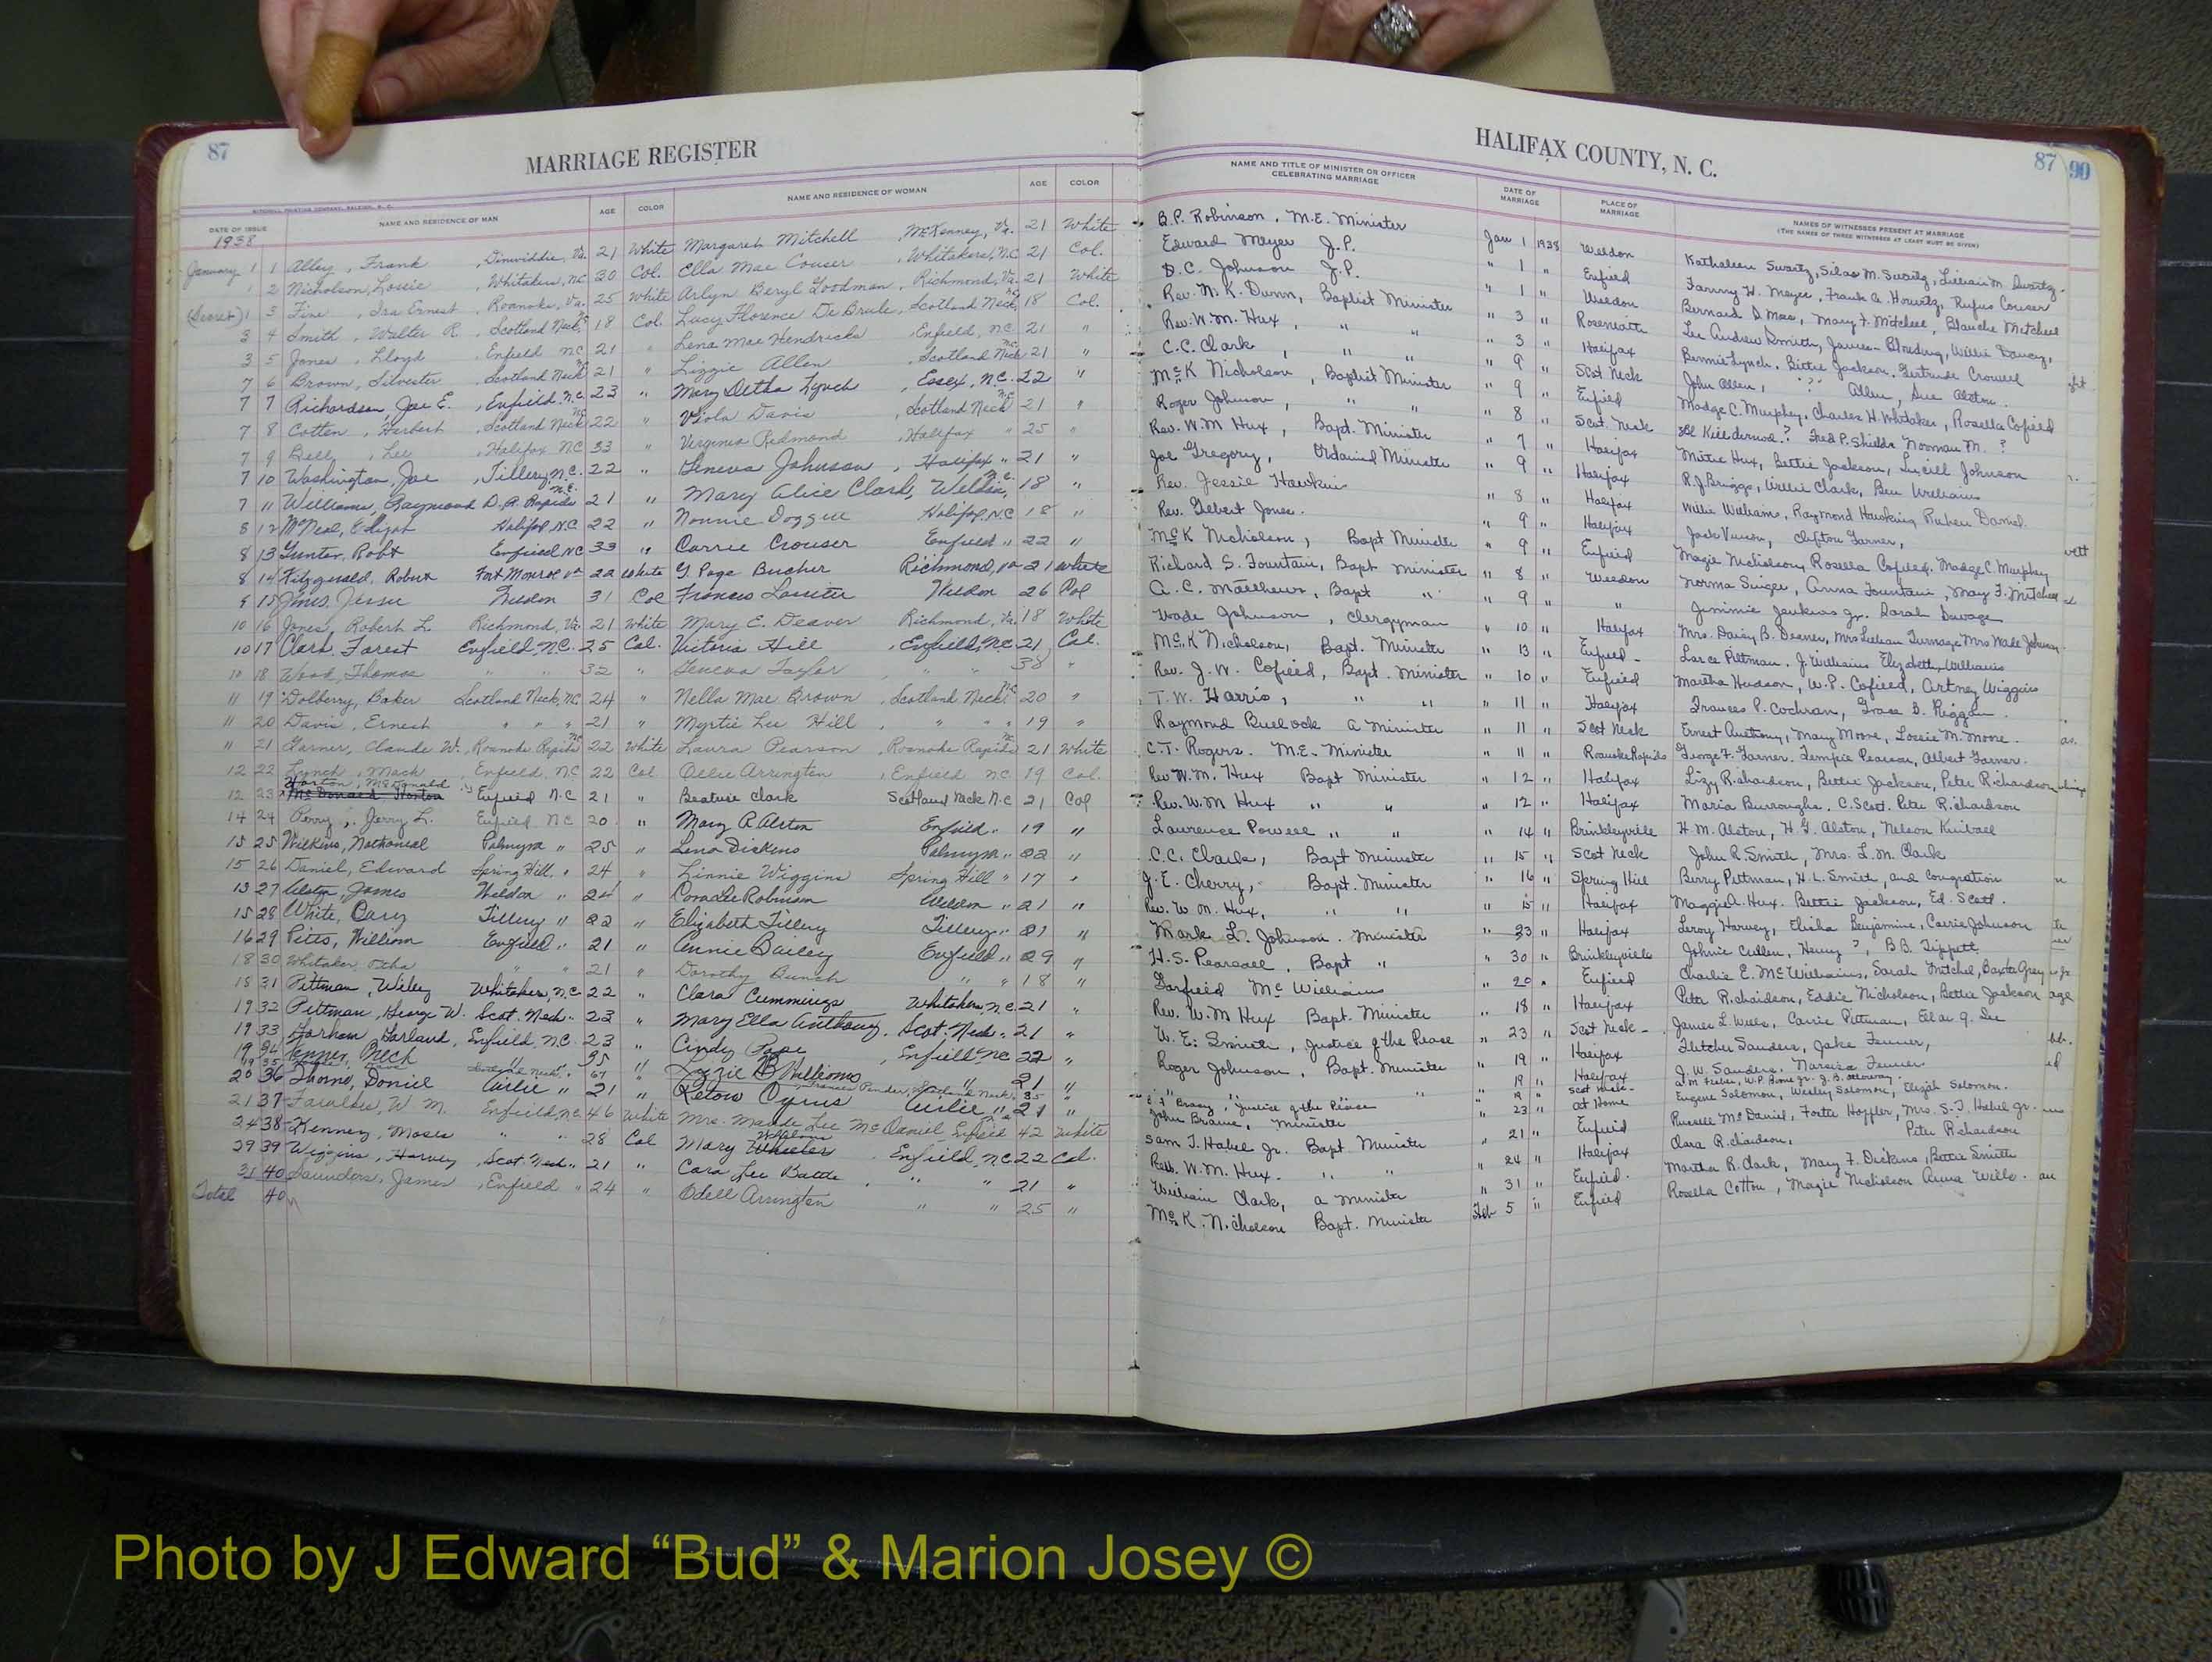 87
MARRIAGE REGISTER
DATE OF ISSUE NAME AND RESIDENCE OF MAN AGE COLOR NAME AND RESIDENCE OF WOMAN AGE COLOR
1938
January 1 1 Alley, Frank , Dinwiddie, Va. 21 White Margaret Mitchell , McKenney, Va. 21 White
1 2 Nicholson, Lossie , Whitakers, NC 30 Col. Ella Mae Couser , Whitakers, N.C 21 Col.
(Secret) 1 3 Fine , Ira Ernest , Roanoke, Va. 25 White Arlyn Beryl Goodman , Richmond, Va. 21 White
3 4 Smith , Walter R. , Scotland Neck, NC 18 Col. Lucy Florence De Brule, Scotland Neck, NC 18 Col.
3 5 Jones , Lloyd , Enfield NC 21 " Lena Mae Hendricks , Enfield, NC. 21 "
7 6 Brown, Silvester , Scotland Neck NC 21 " Lizzie Allen , Scotland Neck NC 21 "
7 7 Richardson, Joe E. , Enfield, N.C. 23 " Mary Letha Lynch , Essex, N.C. 22 "
7 8 Cotten , Herbert , Scotland Neck NC 22 " Viola Davis , Scotland Neck NC 21 "
7 9 Bell , Lee , Halifax NC 33 " Virginia Redmond , Halifax " 25 "
7 10 Washington, Joe , Tillery, N.C. 22 " Geneva Johnson , Halifax " 21 "
7 11 Williams, Raymond D. R. Rapids N.C. 21 " Mary Alice Clark, Weldon, N.C. 18 "
8 12 McNeal, Elijah Halifax N.C 22 " Nonnie Doggue Halifax, N.C 18 "
8 13 Gunter, Robt Enfield NC 33 " Carrie Crouser Enfield " 22 "
8 14 Fitzgerald, Robert Fort Monroe Va 22 White G. Page Bucher Richmond, Va 21 White
9 15 Jesse Weldon 31 Col Frances Lassiter Weldon 26 Col
10 16 Jones, Robert L. Richmond, Va. 21 White Mary E. Deaver Richmond, Va. 18 White
10 17 Clark, Forest Enfield, N.C. 25 Col. Victoria Hill , Enfield, N.C. 21 Col.
10 18 Wood, Thomas " " 32 " Geneva Taylor , " " 38 "
11 19 Dolberry, Baker Scotland Neck, NC 24 " Nella Mae Brown , Scotland Neck NC 20 "
11 20 Davis , Ernest " " " 21 " Myrtie Lee Hill , " " " 19 "
11 21 Garner, Claude W. , Roanoke Rapids NC 22 White Laura Pearson , Roanoke Rapids NC 21 White
12 22 Lynch , Mack , Enfield, NC 22 Col Ollie Arrington , Enfield NC. 19 Col.
Horton, McDonald
12 23 McDonald Horton Enfield N.C 21 " Beatrice Clark Scotland Neck N.C 21 Col
14 24 Perry , Jerry L. Enfield NC 20 " Mary A. Alston Enfield " 19 "
15 25 Wilkins, Nathanial Palmyra " 25 " Lena Dickens Palmyra " 22 "
15 26 Daniel, Edward Spring Hill " 24 " Linnie Wiggins Spring Hill " 17 "
13 27 Alston, James Weldon " 24 " Robinson Weldon " 21 "
15 28 White, Cary Tillery " 22 " Elizabeth Tillery Tillery " 21 "
16 29 Pitts, William Enfield " 21 " Annie Bailey Enfield " 29 "
18 30 Whitaker, Otha " " 21 " Dorothy Bunch " " 18 "
18 31 Pittman , Wiley Whitakers, N.C. 22 " Clara Cummings Whitakers, N.C. 21 "
19 32 Pittman, George W. Scot. Neck " 23 " Mary Ella Anthony, Scot. Neck " 21 "
19 33 Gorham Garland, Enfield, N.C. 23 " Cindy Pope , Enfield NC 22 "
19 34 35 " Lizzie B Williams " 21 "
19 35 67 Frances Pender, Scotland Neck 35
20 36 Thorne, Doniel Airlie " 21 " Retow Cyrus Airlie " 21 "
21 37 Faulkes, W. M. Enfield, NC 46 White Mrs. Maude Lee McDaniel Enfield 42 White
24 38 Kenney, Moses " " 28 Col Mary Wheeler Enfield, N.C. 22 Col.
29 39 Wiggins , Harvey , Scot. Neck " 21 " Cora Lee Battle , " " 21 "
31 40 Saunders, James , Enfield " 24 " Odell Arrington " " 25 "
Total 40
HALIFAX COUNTY, N. C.
87 90
NAME AND TITLE OF MINISTER OR OFFICER CELEBRATING MARRIAGE DATE OF MARRIAGE PLACE OF MARRIAGE NAMES OF WITNESSES PRESENT AT MARRIAGE
(THE NAMES OF THREE WITNESSES AT LEAST MUST BE GIVEN)
B.P. Robinson , M.E. Minister Jan 1 1938 Weldon Kathaleen Swartz, Silas M. Swartz, Lillian M. Swartz.
Edward Meyer J.P. " 1 " Enfield Fanny H. Meyer, Frank A. Horwitz, Rufus Couser
D.C. Johnson J.P. " 1 " Weldon Bernard D. Moss, Mary F. Mitchell, Blanche Mitchell
Rev. N. K. Dunn, Baptist Minister " 3 " Roseneath Lee Andrew Smith, James Willie Dancy,
Rev. W. M. Hux , " " " 3 " Halifax Bennie Lynch, Bettie Jackson, Gertrude Crowell
C.C. Clark , " " " 9 " Scot Neck John Allen, "?" Allen, Sue Alston.
McK Nicholson , Baptist Minister " 9 " Enfield Madge C. Murphey, Charles H. Whitaker, Rosella Cofield
Roger Johnson , " " " 8 " Scot. Neck ? Fred P. Shields Norman M. ?
Rev. W. M Hux , Bapt. Minister " 7 " Halifax Mittie Hux, Bettie Jackson, Lucill Johnson
Joe Gregory, Ordained Minister " 9 " Halifax R.J. Briggs, Willie Clark, Ben Williams
Rev. Jessie Hawkins " 8 " Halifax Willie Williams, Raymond Hawkins, Ruben Daniel
Rev. Gebert Jones. " 9 " Halifax Jack Vinson, Clifton Garner,
McK Nicholson, Bapt Minister " 9 " Enfield Magie Nicholson, Rosella Cofield, Madge C. Murphey
Richard S. Fountain, Bapt Minister " 8 " Weldon Norma Singer, Anna Fountain, May F. Mitchell
A. C. Matthews, Bapt " " 9 " " Jimmie Jenkins Jr. Sarah Savage
Wade Johnson , Clergyman " 10 " Halifax Mrs. Daisy B. Deaver, Mrs Lillian Turnage Mrs Wade Johnson
McK Nicholson, Bapt. Minister " 13 " Enfield - Larce Pittman. J. Williams Elizabeth Williams
Rev. J. W. Cofield, Bapt. Minister " 10 " Enfield Martha Hudson, W.P. Cofield, Artney Wiggins
T. W. Harris, " " " 11 " Halifax Frances P. Cochran, Grace B. Riggan.
Raymond Bullock a Minister " 11 " Scot Neck Ernest Anthony, Mary Moore, Lossie M. Moore.
C.T. Rogers. M.E. Minister " 11 " Roanoke Rapids George F. Garner. Tempie Pearson, Albert Garner.
Rev W. M. Hux Bapt Minister " 12 " Halifax Lizzy Richardson, Bettie Jackson, Peter Richardson
Rev. W. M Hux " " " 12 " Halifax Maria Burroughs. C. Scott. Peter Richardson
Laurence Powell " " " 14 " Brinkleyville H. M. Alston, H. G. Alston, Nelson Kimball
C.C. Clark, Bapt Minister " 15 " Scot Neck John R. Smith, Mrs. L. M. Clark
J. E. Cherry, Bapt. Minister " 16 " Spring Hill Berry Pittman, H. L. Smith, and Congration
Rev. W. M. Hux, " " " 15 " Halifax Maggie A. Hux. Bettie Jackson, Ed. Scott.
Mark L. Johnson. Minister " 23 " Halifax Leroy Harvey, Elisha Benjamine, Carrie Johnson
H. S. Pearsall , Bapt " " 30 " Brinkleyville Johnie Cullen, Henry ?, B.B. Tippett
Garfield McWilliams " 20 " Enfield Charlie E. McWilliams, Sarah Mitchel, Baxter Gray
Rev. W. M Hux Bapt. Minister " 18 " Halifax Peter Richardson, Eddie Nicholson, Bettie Jackson
W. E. Smith , Justice of the Peace " 23 " Scot Neck - James L. Wells, Carrie Pittman,
Roger Johnson , Bapt. Minister " 19 " Halifax Fletcher Sanders, Jake Fenner,
" " " " 19 " Halifax J. W. Sanders. Narsissa Fenner
Justice of the Peace Scot Neck
John Minister " 23 " at Home Eugene Solomon, Wesley Solomon, Elizah Solomon.
Sam T. Habel Jr. Bapt Minister " 21 " Enfield Russell McDaniel, Mrs. S.T. Habel Jr.
Rev. W. M. Hux. " " " 24 " Halifax Clara Richardson, Peter Richardson
William Clark, a Minister " 31 " Enfield. Martha R. Clark, Mary F. Dickens, Bettie Smith
McK. Nicholson Bapt. Minister Feb 5 " Enfield Rosella Cotton, Magie Nicholson Anna Wells.
Photo by J Edward “Bud” & Marion Josey ©